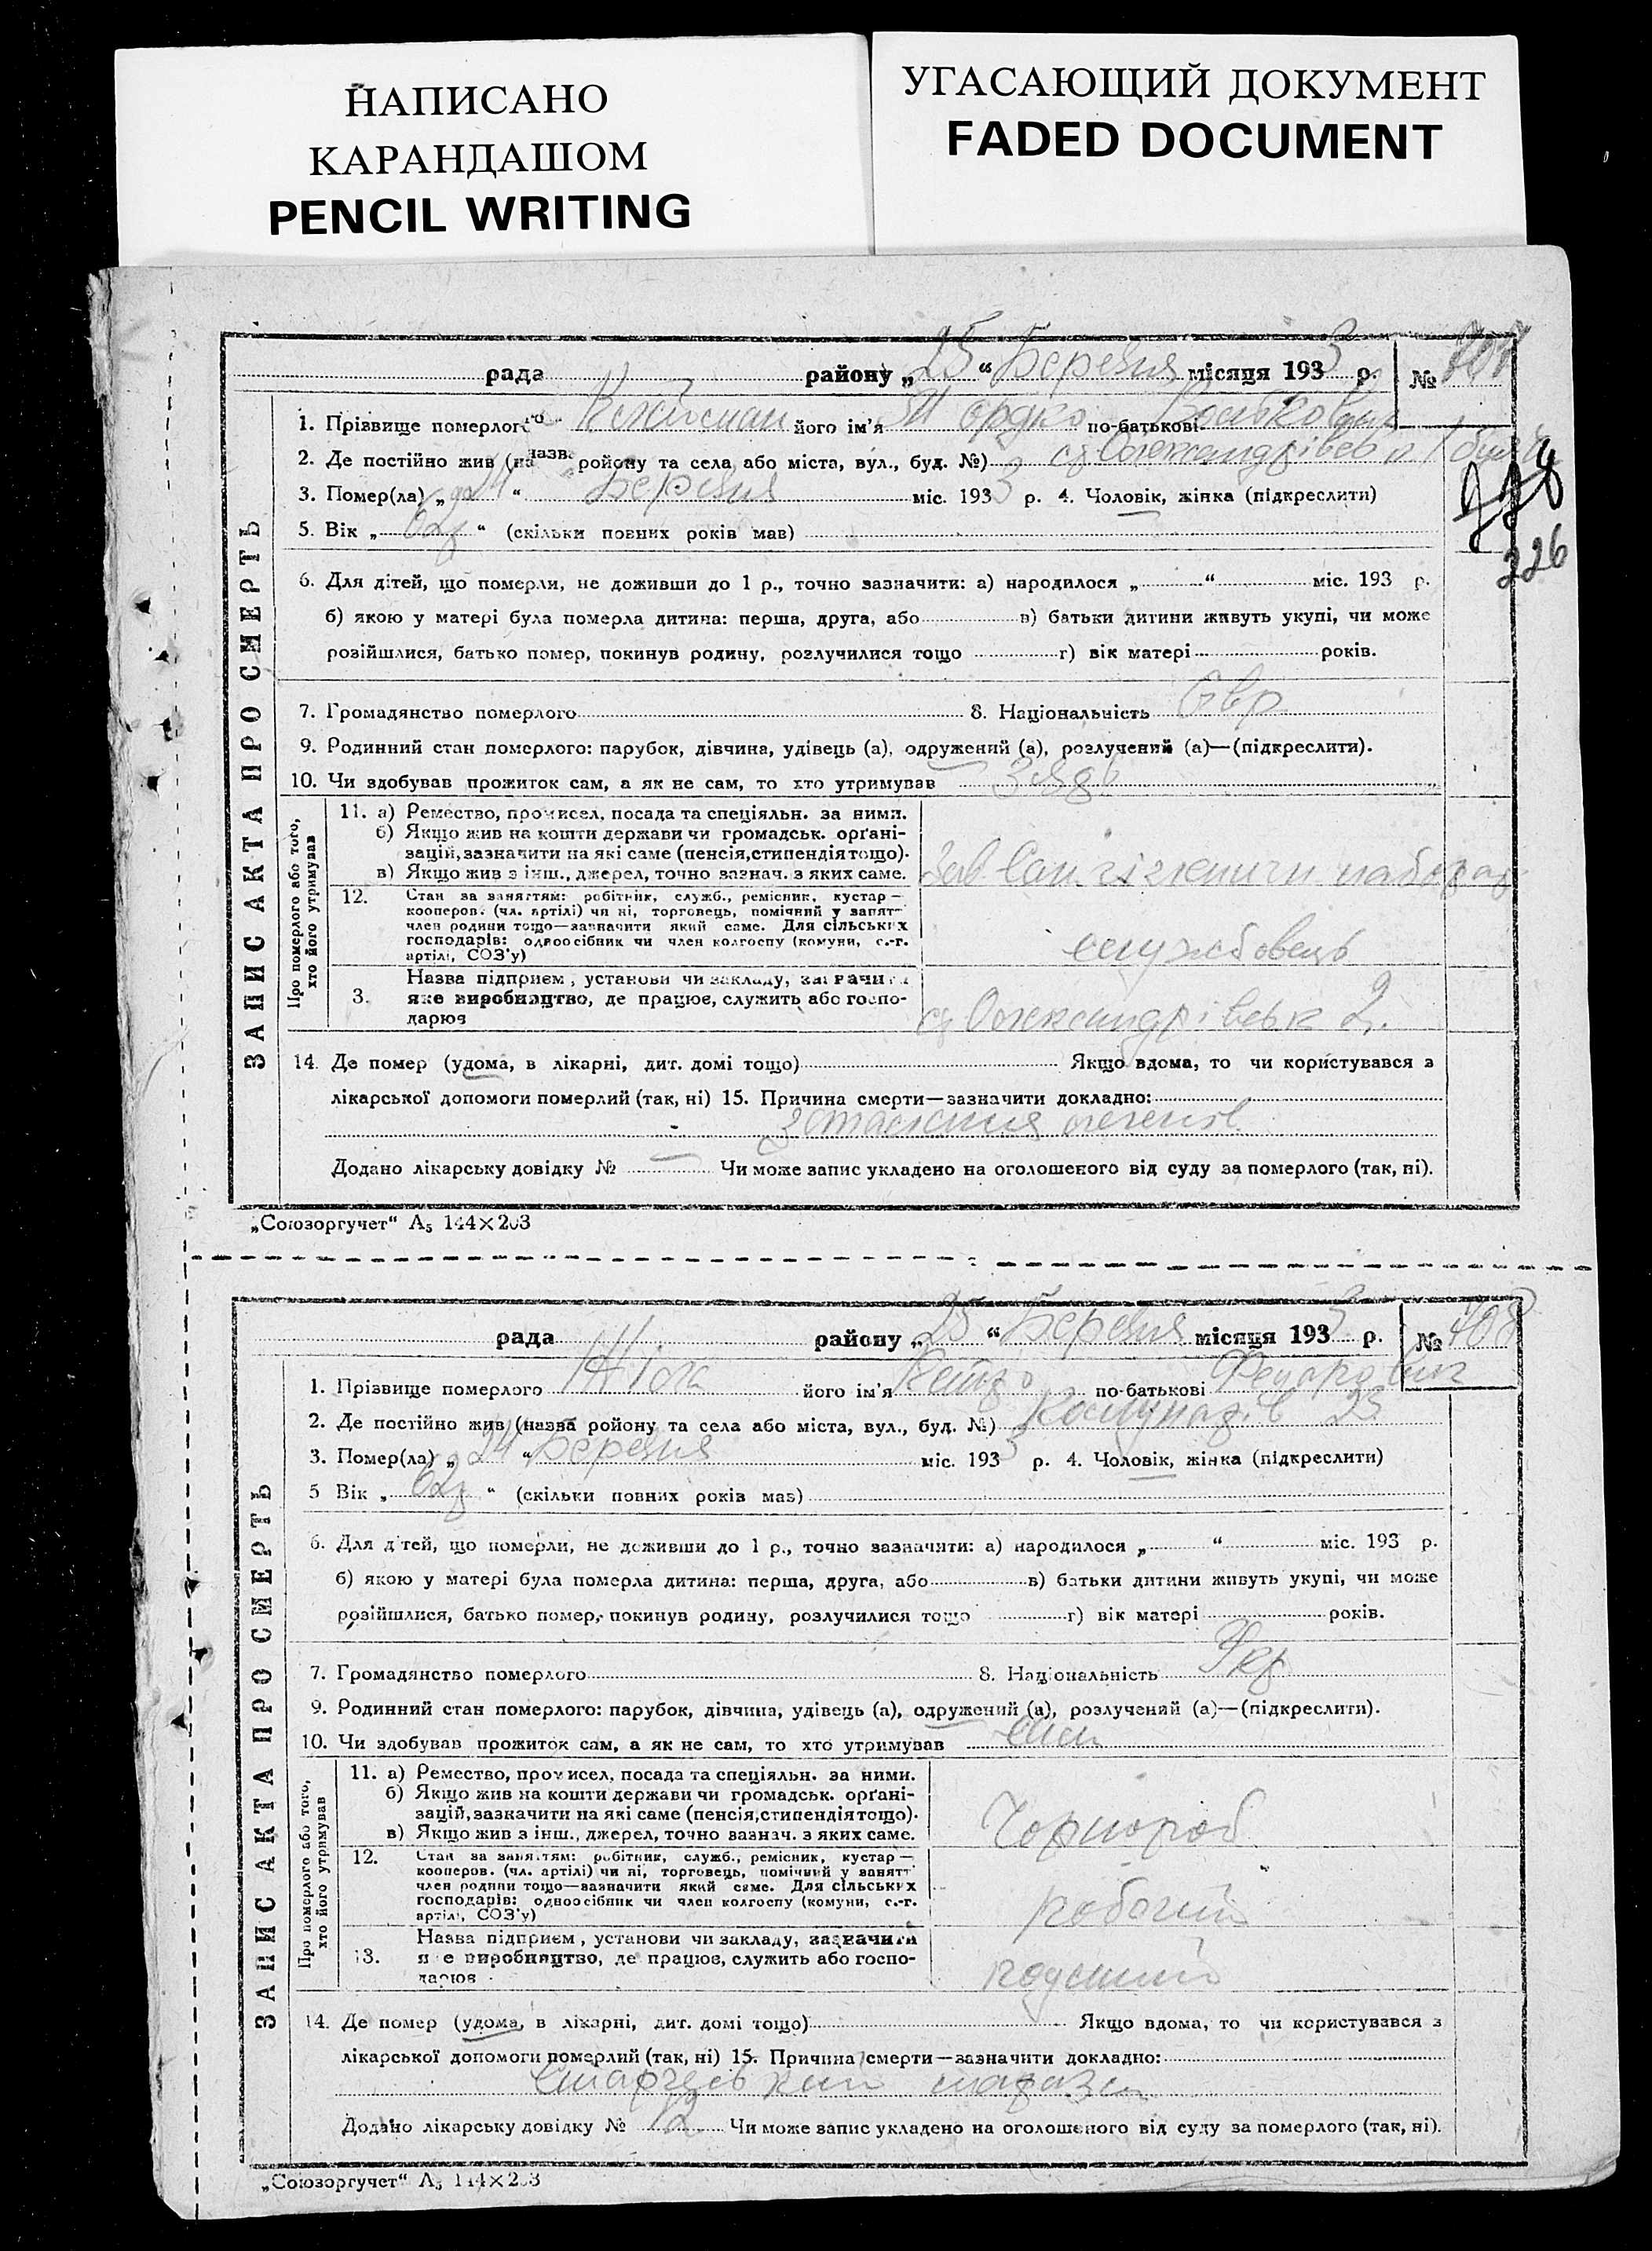 НАПИСАНО
КАРАНДАШОМ
PENCIL WRITING
УГАСАЮЩИЙ ДОКУМЕНТ
FADED DOCUMENT
ЗАПИС АКТА ПРО СМЕРТЬ
рада району „25“ Березня місяця 1933 р. № 407
1. Прізвище померлого його ім'я Мордко по-батькові
2. Де постійно жив (назва ройону та села або міста, вул., буд. №)
3. Помер(ла) „24“ Березня міс. 1933 р. 4. Чоловік, жінка (підкреслити)
226
5. Вік „62“ (скільки повних років мав)
6. Для дітей, що померли, не доживши до 1 р., точно зазначити: а) народилося „ “ міс. 193 р.
б) якою у матері була померла дитина: перша, друга, або в) батьки дитини живуть укупі, чи може
розійшлися, батько помер, покинув родину, розлучилися тощо г) вік матері років.
7. Громадянство померлого 8. Національність Євр
9. Родинний стан померлого: парубок, дівчина, удівець (а), одружений (а), розлучений (а)—(підкреслити).
10. Чи здобував прожиток сам, а як не сам, то хто утримував
Про померлого або того, хто його утримував
11. а) Ремество, промисел, посада та спеціяльн. за ними.
б) Якщо жив на кошти держави чи громадськ. орґані-
зацій, зазначити на які саме (пенсія, стипендія тощо).
в) Якщо жив з інш., джерел, точно зазнач. з яких саме.
12. Стан за заняттям: робітник, служб., ремісник, кустар —
кооперов. (чл. артілі) чи ні, торговець, помічний у занят-
член родини тощо—зазначити який саме. Для сільських
господарів: одноосібник чи член колгоспу (комуни, с.-г.
артілі, СОЗ'у)
службовець
3. Назва підприєм, установи чи закладу, зазначити
яке виробництво, де працює, служить або госпо-
дарює
14. Де помер (удома, в лікарні, дит. домі тощо) Якщо вдома, то чи користувався з
лікарської допомоги померлий (так, ні) 15. Причина смерти—зазначити докладно:
Додано лікарську довідку № Чи може запис укладено на оголошеного від суду за померлого (так, ні).
„Союзоргучет“ А5 144×203
ЗАПИС АКТА ПРО СМЕРТЬ
рада району „25“ Березня місяця 1933 р. № 408
1. Прізвище померлого його ім'я по-батькові
2. Де постійно жив (назва ройону та села або міста, вул., буд. №) 25
3. Помер(ла) „24“ Березня міс. 1933 р. 4. Чоловік, жінка (підкреслити)
5 Вік „62“ (скільки повних років мав)
6. Для дітей, що померли, не доживши до 1 р., точно зазначити: а) народилося „ “ міс. 193 р.
б) якою у матері була померла дитина: перша, друга, або в) батьки дитини живуть укупі, чи може
розійшлися, батько помер, покинув родину, розлучилися тощо г) вік матері років.
7. Громадянство померлого 8. Національність Укр
9. Родинний стан померлого: парубок, дівчина, удівець (а), одружений (а), розлучений (а)—(підкреслити).
10. Чи здобував прожиток сам, а як не сам, то хто утримував
Про померлого або того, хто його утримував
11. а) Ремество, промисел, посада та спеціяльн. за ними.
б) Якщо жив на кошти держави чи громадськ. орґані-
зацій, зазначити на які саме (пенсія, стипендія тощо).
в) Якщо жив з інш., джерел, точно зазнач. з яких саме.
Чорнороб
12. Стан за заняттям: робітник, служб., ремісник, кустар —
кооперов. (чл. артілі) чи ні, торговець, помічний у занятт
член родини тощо—зазначити який саме. Для сільських
господарів: одноосібник чи член колгоспу (комуни, с.-г.
артілі, СОЗ'у)
робочий
13. Назва підприєм, установи чи закладу, зазначити
яке виробництво, де працює, служить або госпо-
дарює
14. Де помер (удома, в лікарні, дит. домі тощо) Якщо вдома, то чи користувався з
лікарської допомоги померлий (так, ні) 15. Причина смерти—зазначити докладно:
Старческий маразм
Додано лікарську довідку № 12 Чи може запис укладено на оголошеного від суду за померлого (так, ні).
„Союзоргучет“ А5 144×203